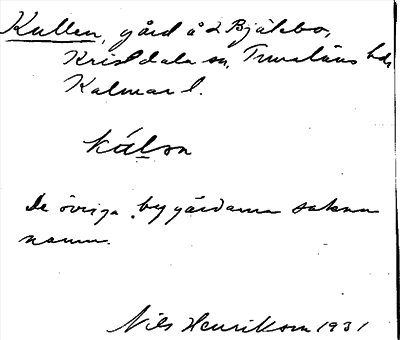 Kullen, gård å 2 Bjälebo,
Kristdala sn, Tunaläns hd
Kalmar l.
kúlsn
De övriga bygårdarna sakna
namn.
Nils Henriksson 1931